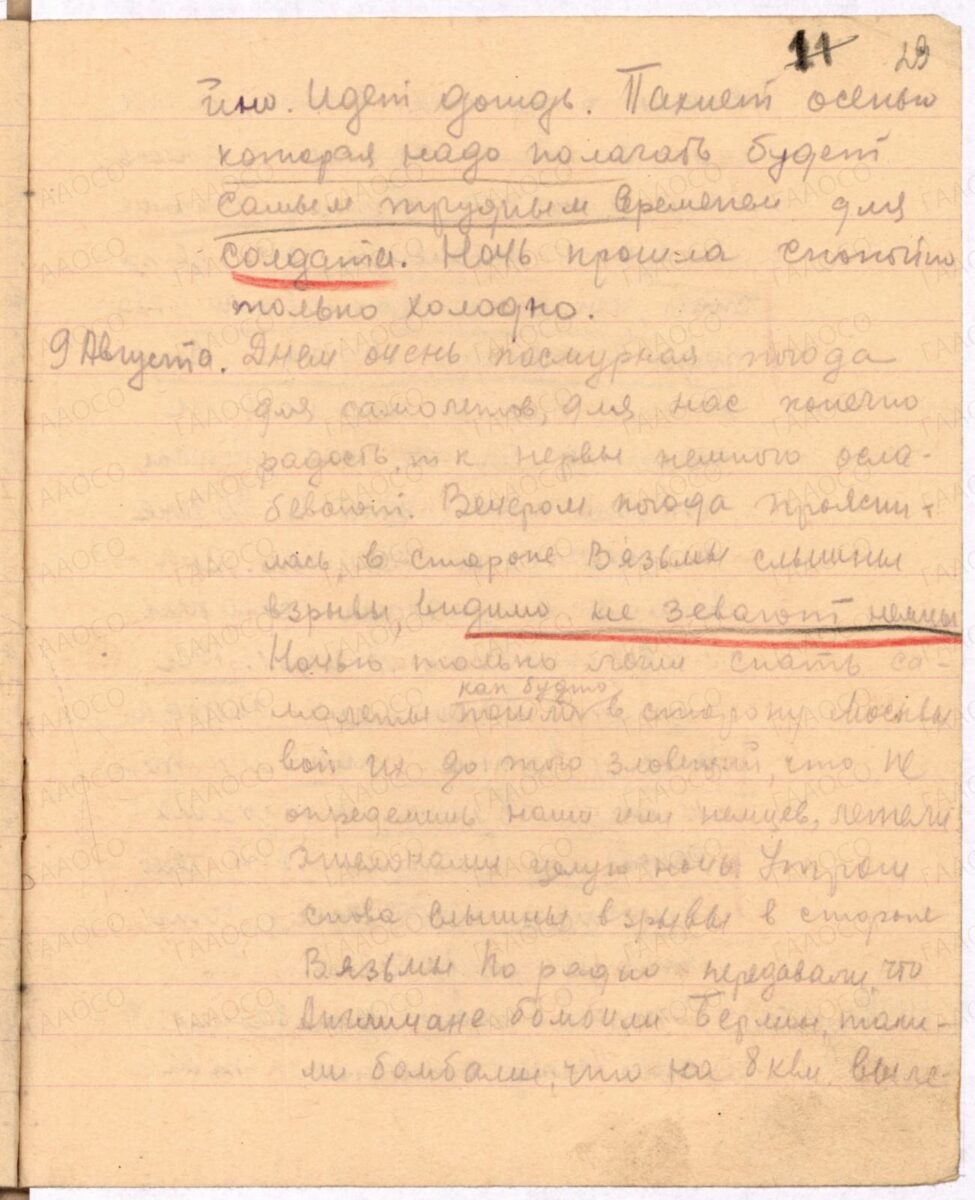 11 29
йно. Идет дождь. Пахнет осенью
которая надо полагать будет
самым трудным временем для
солдата. Ночь прошла спокойно
только холодно.
9 Августа. Днем очень пасмурная погода
для самолетов, для нас конечно
радость, т к нервы немного осла-
бевают. Вечером погода проясни-
лась, в стороне Вязьмы слышны
взрывы, видимо не зевают немцы
Ночью только легли спать са-
как будто
молеты пошли в сторону Москвы
вой их до того зловещий, что не
определишь наши или немцев, летели
эшелонами целую ночь. Утром
снова слышны взрывы в стороне
Вязьмы По радио передавали, что
Англичане бомбили Берлин, таки-
ми бомбами, что на 8 квм.